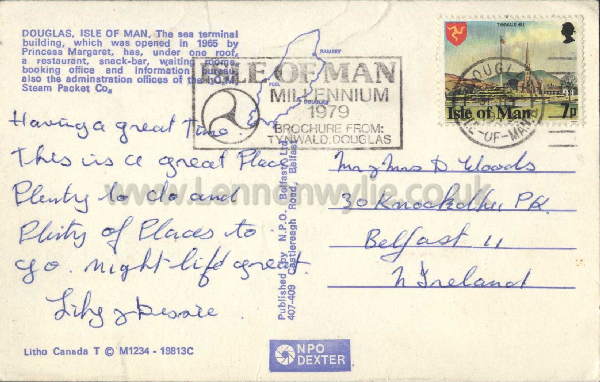 DOUGLAS, ISLE OF MAN. The sea terminal
building, which was opened in 1965 by
Princess Margaret, has, under one roof,
a restaurant, snack-bar, waiting rooms,
booking office and information bureau,
also the adminstration offices of the I.O.M.
Steam Packet Co.
RAMSEY
PEEL
DOUGLAS
ISLE OF MAN
MILLENNIUM
1979
BROCHURE FROM:
TYNWALD. DOUGLAS
TYNWALD HILL
Isle of Man 7p
DOUGLAS
ISLE-OF-MAN
Having a great time.
This is a great Place
Plenty to do and
Plenty of Places to
go. night life great.
Lily & Dessie
Published by N.P.O. Belfast Ltd.
407-409 Castlereagh Road, Belfast
Mr & Mrs D Woods
30 Knockdhu PK.
Belfast 11
N Ireland
www.Lennonwylie.co.uk
Litho Canada T © M1234 - 19813C
NPO
DEXTER